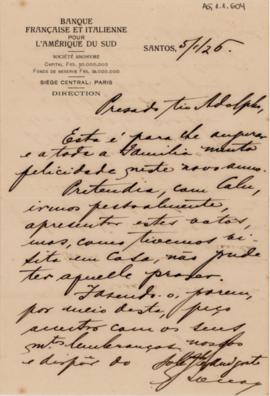 AG.1.1.604
BANQUE
FRANÇAISE ET ITALIENNE
POUR
L'AMÉRIQUE DU SUD
SOCIÉTÉ ANONYME
CAPITAL FRS. 50.000.000
FONDS DE RESERVE FRS.
SIÉGE CENTRAL: PARIS
DIRECTION
SANTOS, 5/1/26.
Presado tio Adolpho,
Esta é para lhe augurar
e a toda a familia muita
felicidade neste novo anno.
Pretendia, com Calu,
irmos pessoalmente,
apresentar estes votos,
mas, como tivemos vi-
sita em casa, não pude
ter aquelle prazer.
Fazendo-o, porem,
por meio desta, peço
acceitar com os seus
m.tas lembranças nossas
e dispôr do